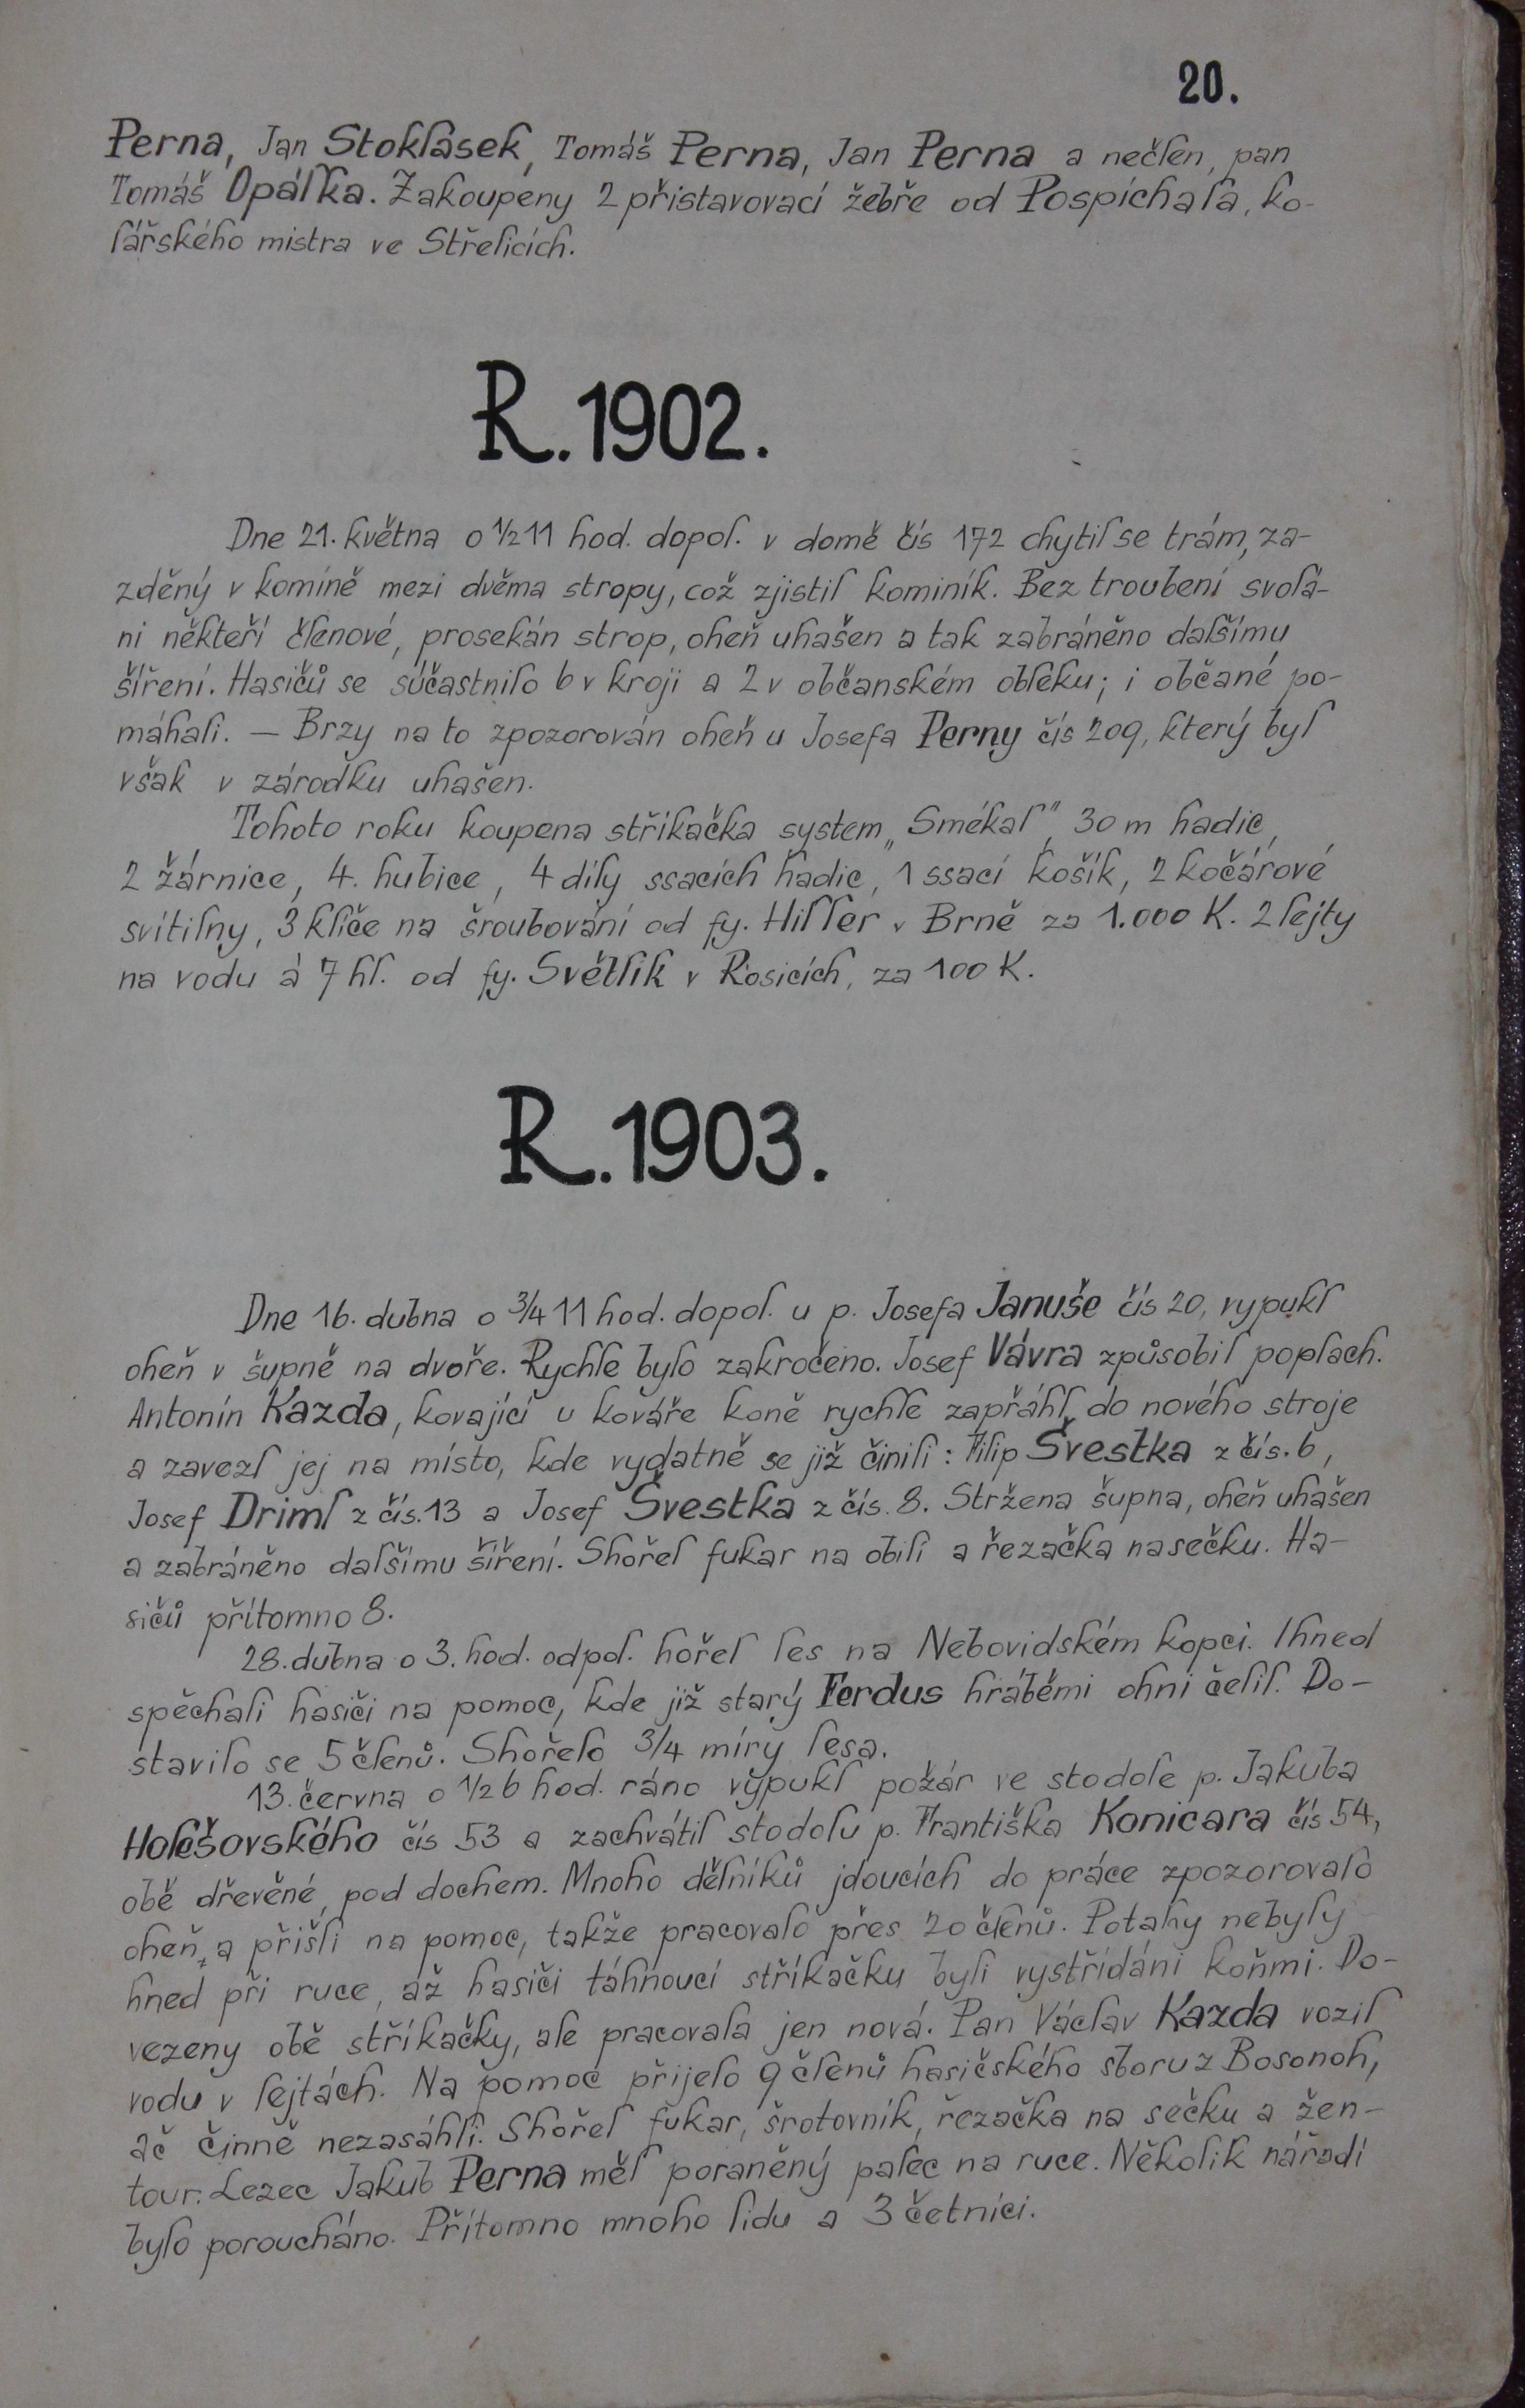 20.
Perna, Jan Stoklásek, Tomáš Perna, Jan Perna a nečlen, pan
Tomáš Opálka. Zakoupeny 2 přistavovací žebře od Pospíchala, ko-
lářského mistra ve Střelicích.
R. 1902.
Dne 21. května o ½ 11 hod. dopol. v domě čís 172 chytil se trám, za-
zděný v komíně mezi dvěma stropy, což zjistil kominík. Bez troubení svolá-
ni někteří členové, prosekán strop, oheň uhašen a tak zabráněno dalšímu
šíření. Hasičů se súčastnilo 6 v kroji a 2 v občanském obleku; i občané po-
máhali. — Brzy na to zpozorován oheň u Josefa Perny čís 209, který byl
však v zárodku uhašen.
Tohoto roku koupena stříkačka system „Smékal", 30 m hadic,
2 žárnice, 4. hubice, 4 díly ssacích hadic, 1 ssací košík, 2 kočárové
svítilny, 3 klíče na šroubování od fy. Hiller v Brně za 1.000 K. 2 lejty
na vodu á 7 hl. od fy. Světlík v Rosicích, za 100 K.
R. 1903.
Dne 16. dubna o ¾ 11 hod. dopol. u p. Josefa Januše čís 20, vypukl
oheň v šupně na dvoře. Rychle bylo zakročeno. Josef Vávra způsobil poplach.
Antonín Kazda, kovající u kováře koně rychle zapřáhl do nového stroje
a zavezl jej na místo, kde vydatně se již činili: Filip Švestka z čís. 6,
Josef Driml z čís. 13 a Josef Švestka z čís. 8. Stržena šupna, oheň uhašen
a zabráněno dalšímu šíření. Shořel fukar na obilí a řezačka na sečku. Ha-
sičů přítomno 8.
28. dubna o 3. hod. odpol. hořel les na Nebovidském kopci. Ihned
spěchali hasiči na pomoc, kde již starý Ferdus hráběmi ohni čelil. Do-
stavilo se 5 členů. Shořelo ¾ míry lesa.
13. června o ½ 6 hod. ráno vypukl požár ve stodole p. Jakuba
Holešovského čís 53 a zachvátil stodolu p. Františka Konicara čís 54,
obě dřevěné, pod dochem. Mnoho dělníků jdoucích do práce zpozorovalo
oheň, a přišli na pomoc, takže pracovalo přes 20 členů. Potahy nebyly
hned při ruce, až hasiči táhnoucí stříkačku byli vystřídáni koňmi. Do-
vezeny obě stříkačky, ale pracovala jen nová. Pan Václav Kazda vozil
vodu v lejtách. Na pomoc přijelo 9 členů hasičského sboru z Bosonoh,
ač činně nezasáhli. Shořel fukar, šrotovník, řezačka na sečku a žen-
tour. Lezec Jakub Perna měl poraněný palec na ruce. Několik nářadí
bylo porouchano. Přítomno mnoho lidu a 3 četníci.